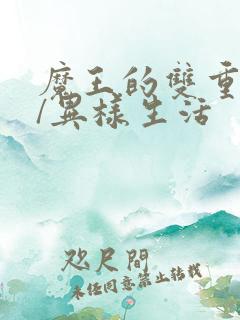 魔王的雙重
/異樣生活
咫尺間
未經同意禁止轉載